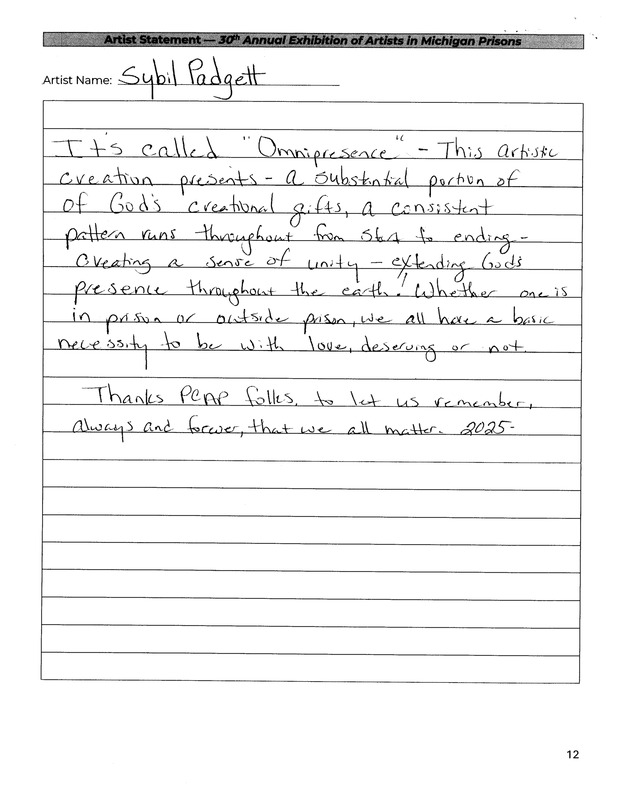 Artist Statement — 30th Annual Exhibition of Artists in Michigan Prisons
Artist Name: Sybil Padgett
It's called "Omnipresence" - This artistic
creation presents - a substantial portion of
of God's creational gifts, a consistent
pattern runs throughout from start to ending -
creating a sense of unity - extending God's
presence throughout the earth! Whether one is
in prison or outside prison, we all have a basic
necessity to be with love, deserving or not.
Thanks PCAP folks, to let us remember,
always and forever, that we all matter. 2025-
12